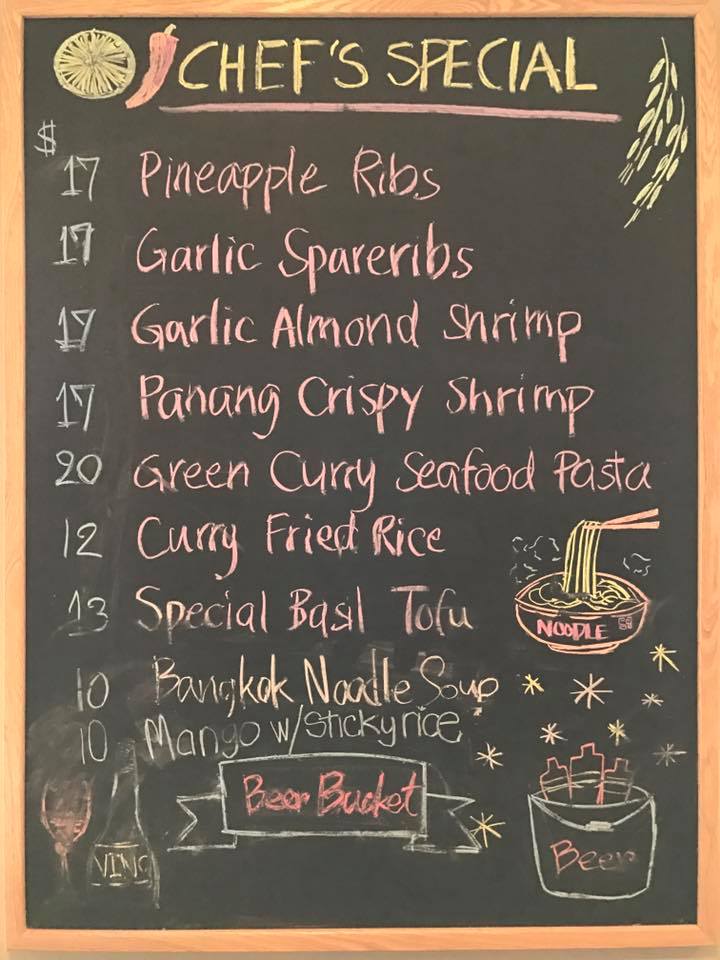 CHEF'S SPECIAL
$
17 Pineapple Ribs
17 Garlic Spareribs
17 Garlic Almond Shrimp
17 Panang Crispy Shrimp
20 Green Curry Seafood Pasta
12 Curry Fried Rice
13 Special Basil Tofu
NOODLE
10 Bangkok Noodle Soup
10 Mango w/Stickyrice
Beer Bucket
VINO
Beer